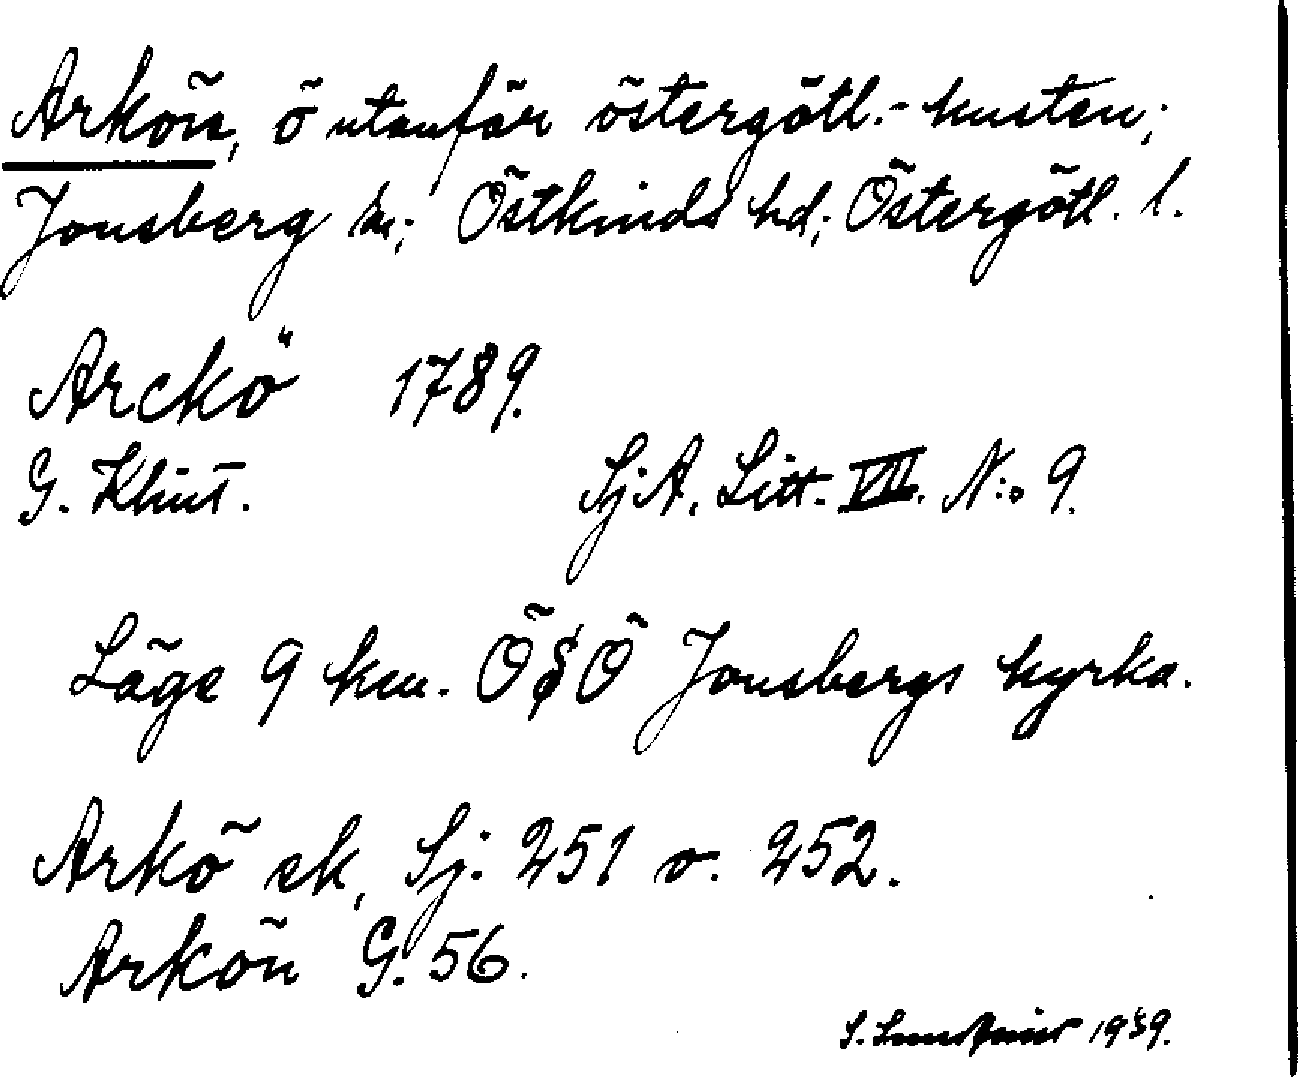 Arkön, ö utanför östergötl.-kusten;
Jonsberg sn; Östkinds hd; Östergötl. l.
Arckö 1789.
G. Klint. SjA. Litt. VII. N:o 9.
Läge 9 km. ÖSÖ Jonsbergs kyrka.
Arkö ek, Sj. 251 o. 252.
Arkön G. 56.
S. 1939.